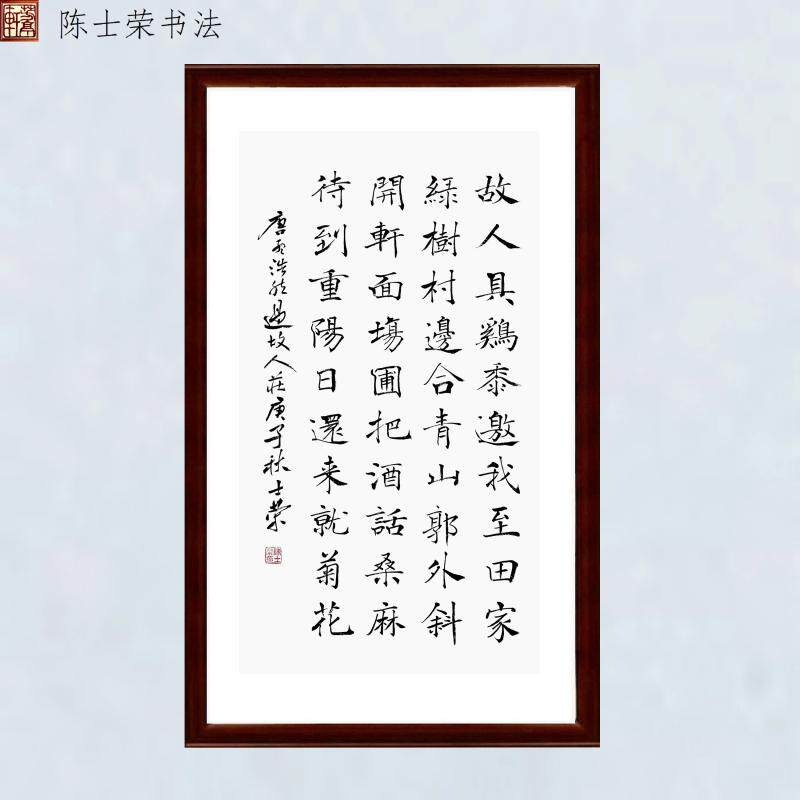 陈士荣书法
故人具鷄黍邀我至田家
緑樹村邊合青山郭外斜
開軒面塲圃把酒話桑麻
待到重陽日還来就菊花
唐孟浩然過故人莊庚子秋士榮